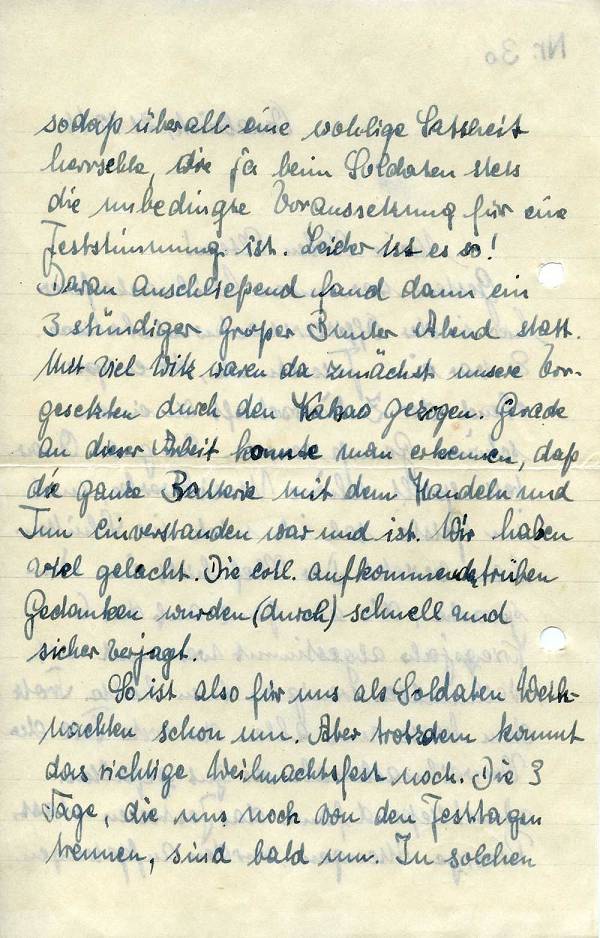 sodaß überall eine wohlige Sattheit
herrschte, die ja beim Soldaten stets
die unbedingte Voraussetzung für eine
Feststimmung ist. Leider ist es so!
Daran anschließend fand dann ein
3 stündiger großer Bunter Abend statt.
Mit viel Witz waren da zunächst unsere Vor-
gesetzten durch den Kakao gezogen. Gerade
an dieser Arbeit konnte man erkennen, daß
die ganze Batterie mit dem Handeln und
Tun einverstanden war und ist. Wir haben
viel gelacht. Die evtl. aufkommende trüben
Gedanken wurden (durch) schnell und
sicher verjagt.
So ist also für uns als Soldaten Weih-
nachten schon um. Aber trotzdem kommt
das richtige Weihnachtsfest noch. Die 3
Tage, die uns noch von den Festtagen
trennen, sind bald um. In solchen